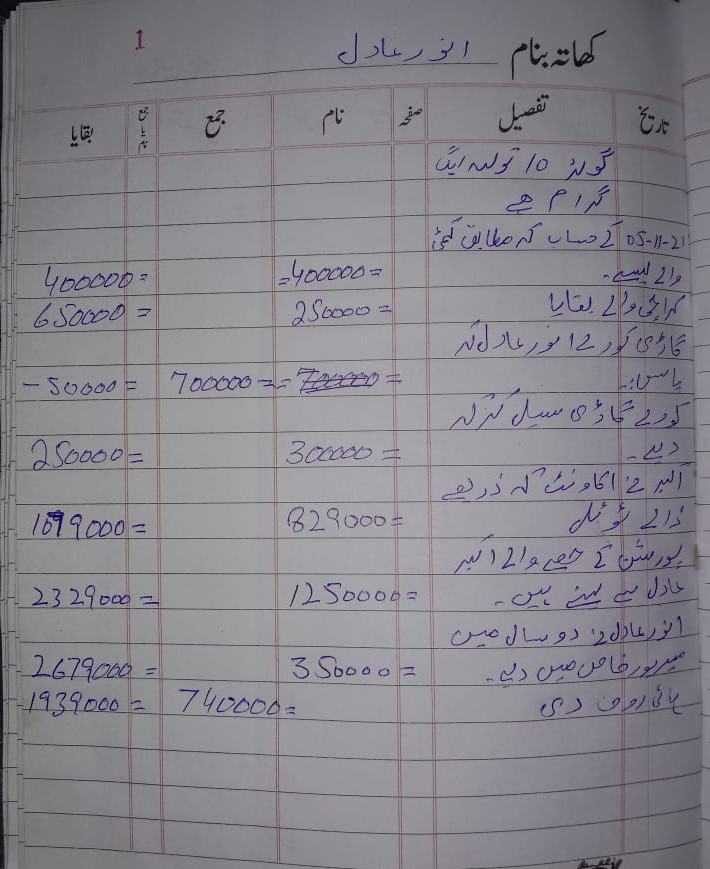 1
کھاتہ بنام انور عادل
تاریخ تفصیل صفحہ نام جمع جمع یا نام بقایا
گولڈ 10 تولہ ایک
گرام ہے
05-11-21 کے حساب کہ مطابق کمٹی
والے پیسے۔ =400000= 400000=
کراچی والے بقایا 250000= 650000=
گاڑی کورے انور عادل کہ
پاس۔ =700000= 700000= -50000=
کورے گاڑی سیل کرکہ
دیے۔ 300000= 250000=
اکبر نے اکاونٹ کہ ذریعے
ڈالے ٹوٹل 829000= 1079000=
پورشن کے حصے والے اکبر
عادل سے لینے ہیں۔ 1250000= 2329000=
انور عادل نے دو سال میں
میرپور خاص میں دیے۔ 350000= 2679000=
ہائی روف دی 740000= 1939000=